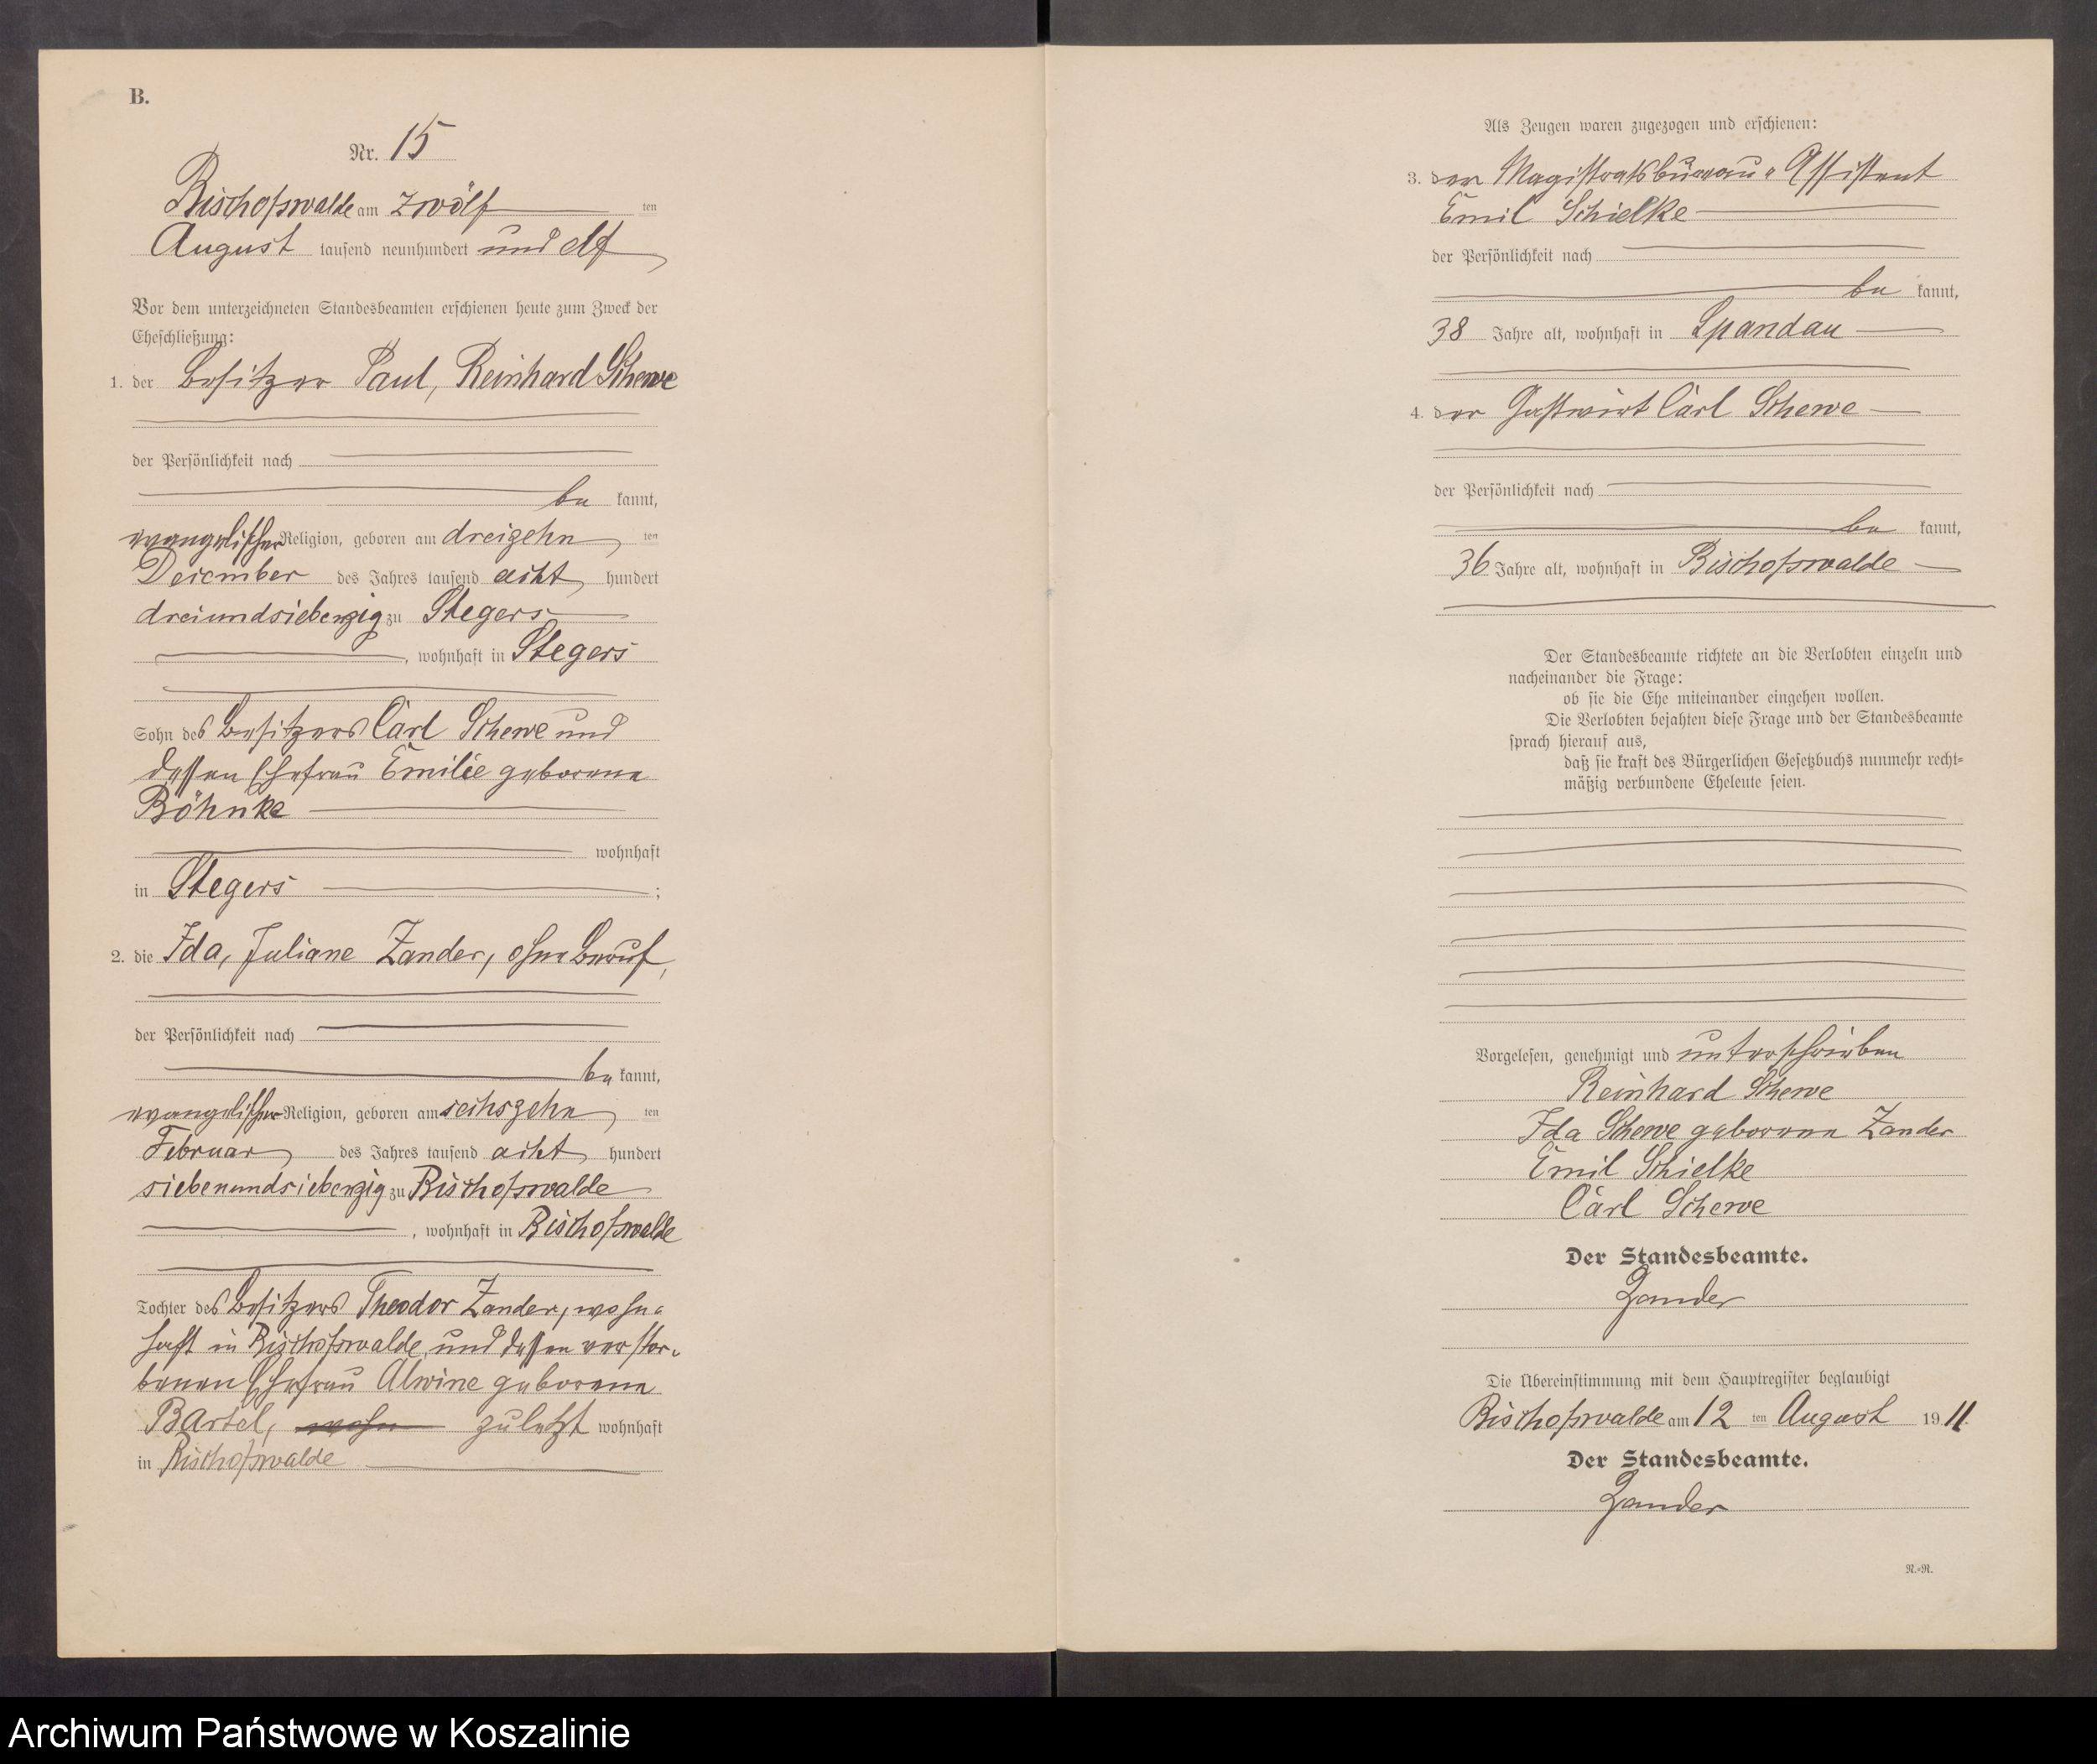 B.
Nr. 15
Bischofswalde am zwölf ten
August tausend neunhundert und elf
Vor dem unterzeichneten Standesbeamten erschienen heute zum Zweck der
Eheschließung:
1. der Besitzer Paul, Reinhard Schewe
der Persönlichkeit nach
be kannt,
evangelischer Religion, geboren am dreizehn ten
Dezember des Jahres tausend acht hundert
dreiundsiebenzig zu Stegers
, wohnhaft in Stegers
Sohn des Besitzers Carl Schewe und
dessen Ehefrau Emilie geborene
Böhnke
wohnhaft
in Stegers ;
2. die Ida, Juliane Zander, ohne Beruf,
der Persönlichkeit nach
be kannt,
evangelischer Religion, geboren am sechszehn ten
Februar des Jahres tausend acht hundert
siebenundsiebenzig zu Bischofswalde
, wohnhaft in Bischofswalde
Tochter des Besitzers Theodor Zander, wohn-
haft in Bischofswalde, und dessen verstor-
benen Ehefrau Alwine geborene
Bartel, wohn zuletzt wohnhaft
in Bischofswalde
Als Zeugen waren zugezogen und erschienen:
3. der Magistratsbüreau-Assistent
Emil Schielke
der Persönlichkeit nach
be kannt,
38 Jahre alt, wohnhaft in Spandau
4. der Gastwirt Carl Schewe
der Persönlichkeit nach
be kannt,
36 Jahre alt, wohnhaft in Bischofswalde
Der Standesbeamte richtete an die Verlobten einzeln und
nacheinander die Frage:
ob sie die Ehe miteinander eingehen wollen.
Die Verlobten bejahten diese Frage und der Standesbeamte
sprach hierauf aus,
daß sie kraft des Bürgerlichen Gesetzbuchs nunmehr recht-
mäßig verbundene Eheleute seien.
Vorgelesen, genehmigt und unterschrieben
Reinhard Schewe
Ida Schewe geborene Zander
Emil Schielke
Carl Schewe
Der Standesbeamte.
Zander
Die Übereinstimmung mit dem Hauptregister beglaubigt
Bischofswalde am 12 ten August 19 11
Der Standesbeamte.
Zander
N.-R.
Archiwum Państwowe w Koszalinie